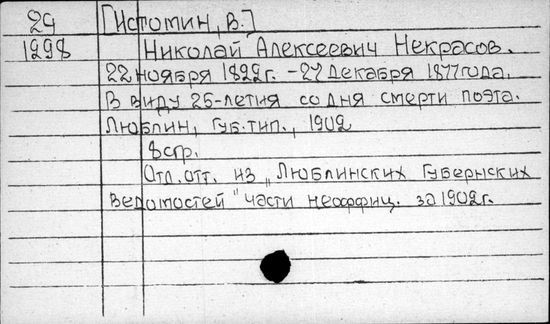 29 [Истомин, В.]
1298 Николай Алексеевич Некрасов.
22 ноября 1822г. - 27 декабря 1877года.
В виду 25-летия со дня смерти поэта.
Люблин, Губ. тип., 1902
8стр.
Отд. отт. из „Люблинских Губернских
Ведомостей" части неоффиц. за 1902г.